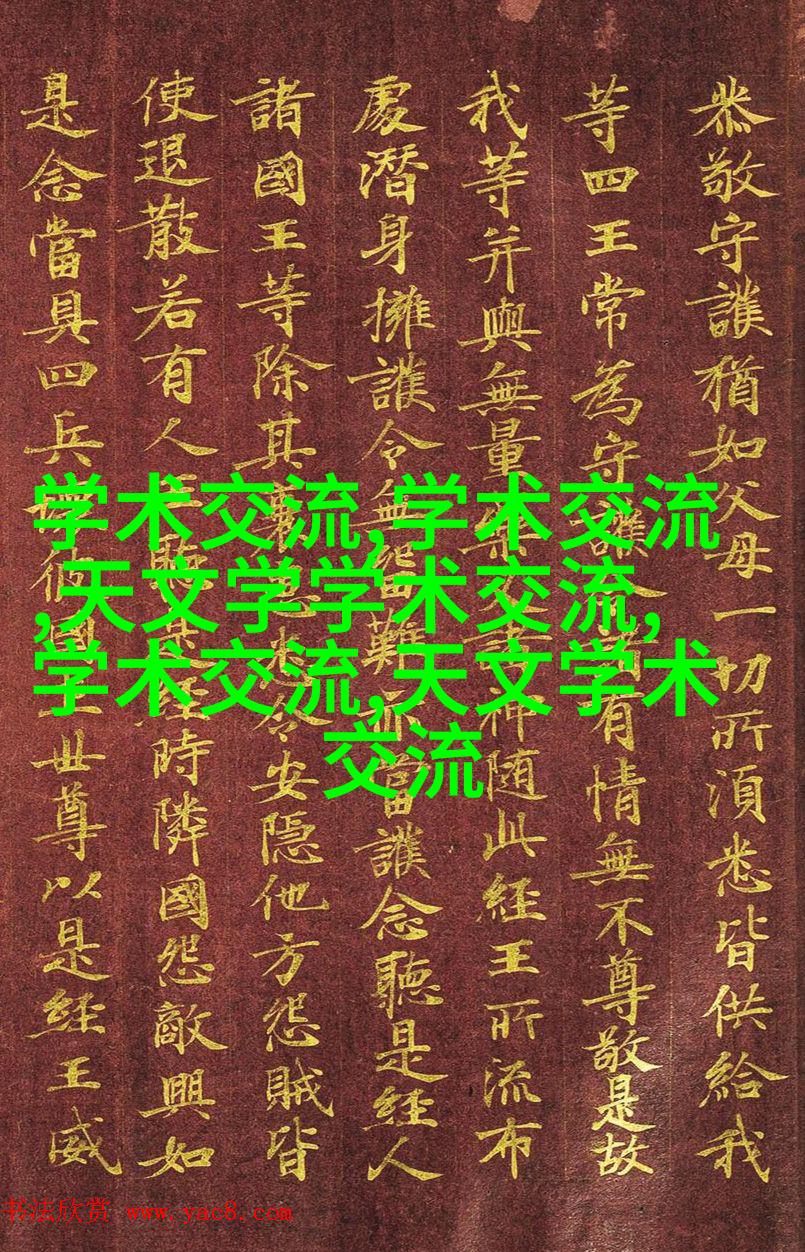 恭敬守護猶如父母一切所須悉皆供給我
等四王常為守護有情無不尊敬是故
我等并與無量神随此經王所流布
處潛身擁護令無難亦當護念聽是經人
諸國王等除其令安隱他方怨賊皆
使退散若有人經時隣國怨敵興如
是念當具四兵國世尊以是經王威
学术交流,学术交流
,天文学学术交流,
学术交流,天文学术
交流
书法欣赏 www.yac8.com